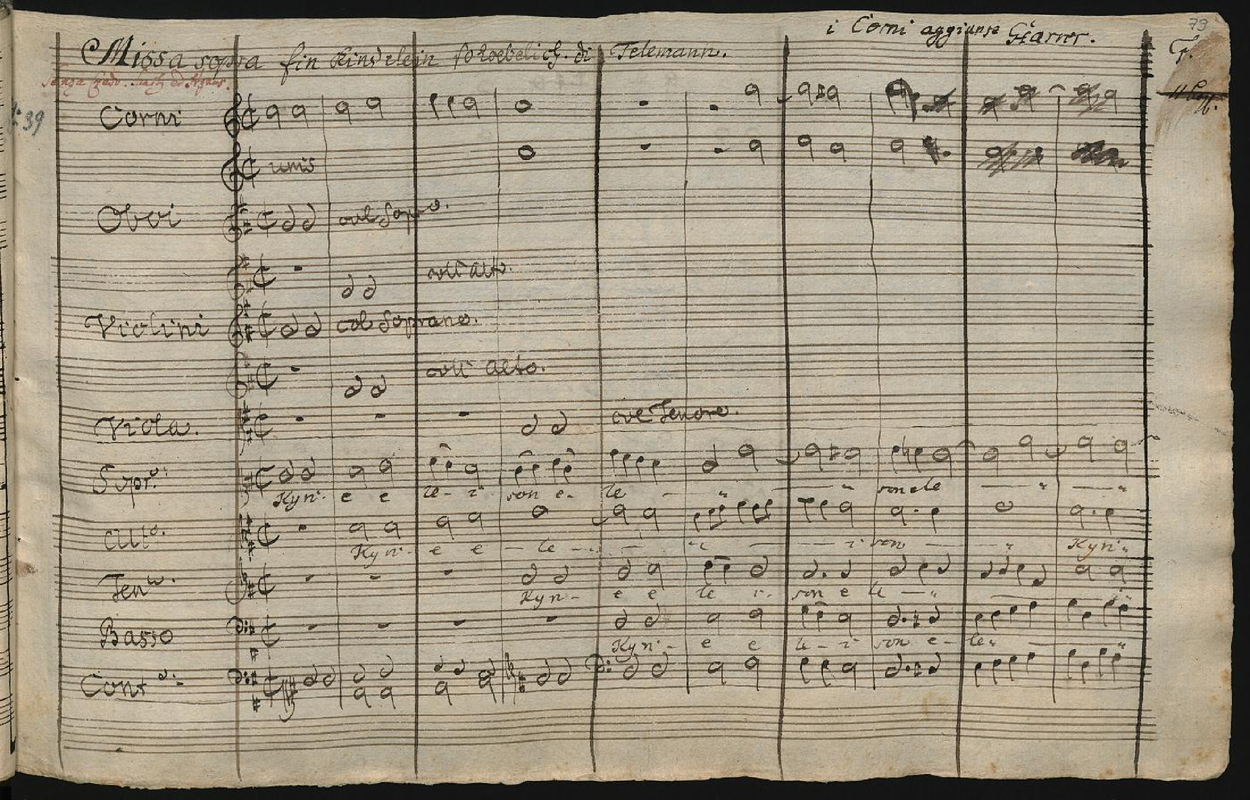 79
i Corni aggiunse Harrer.
Missa sopra Ein Kindelein so loebelich. di Telemann.
39
Corni
unis
Oboi
col Sopro.
coll Alto.
Violini
col Soprano.
coll Alto.
Viola.
col Tenore.
Sopr:
Kyri- e e le- i- son e- le — " son ele — "
Alto.
Kyri- e e - le - - i — i son " Kyri"
Ten.
Kyri- e e le i- son e le — "
Basso
Kyri- e e le - i son e- le- "
Cont